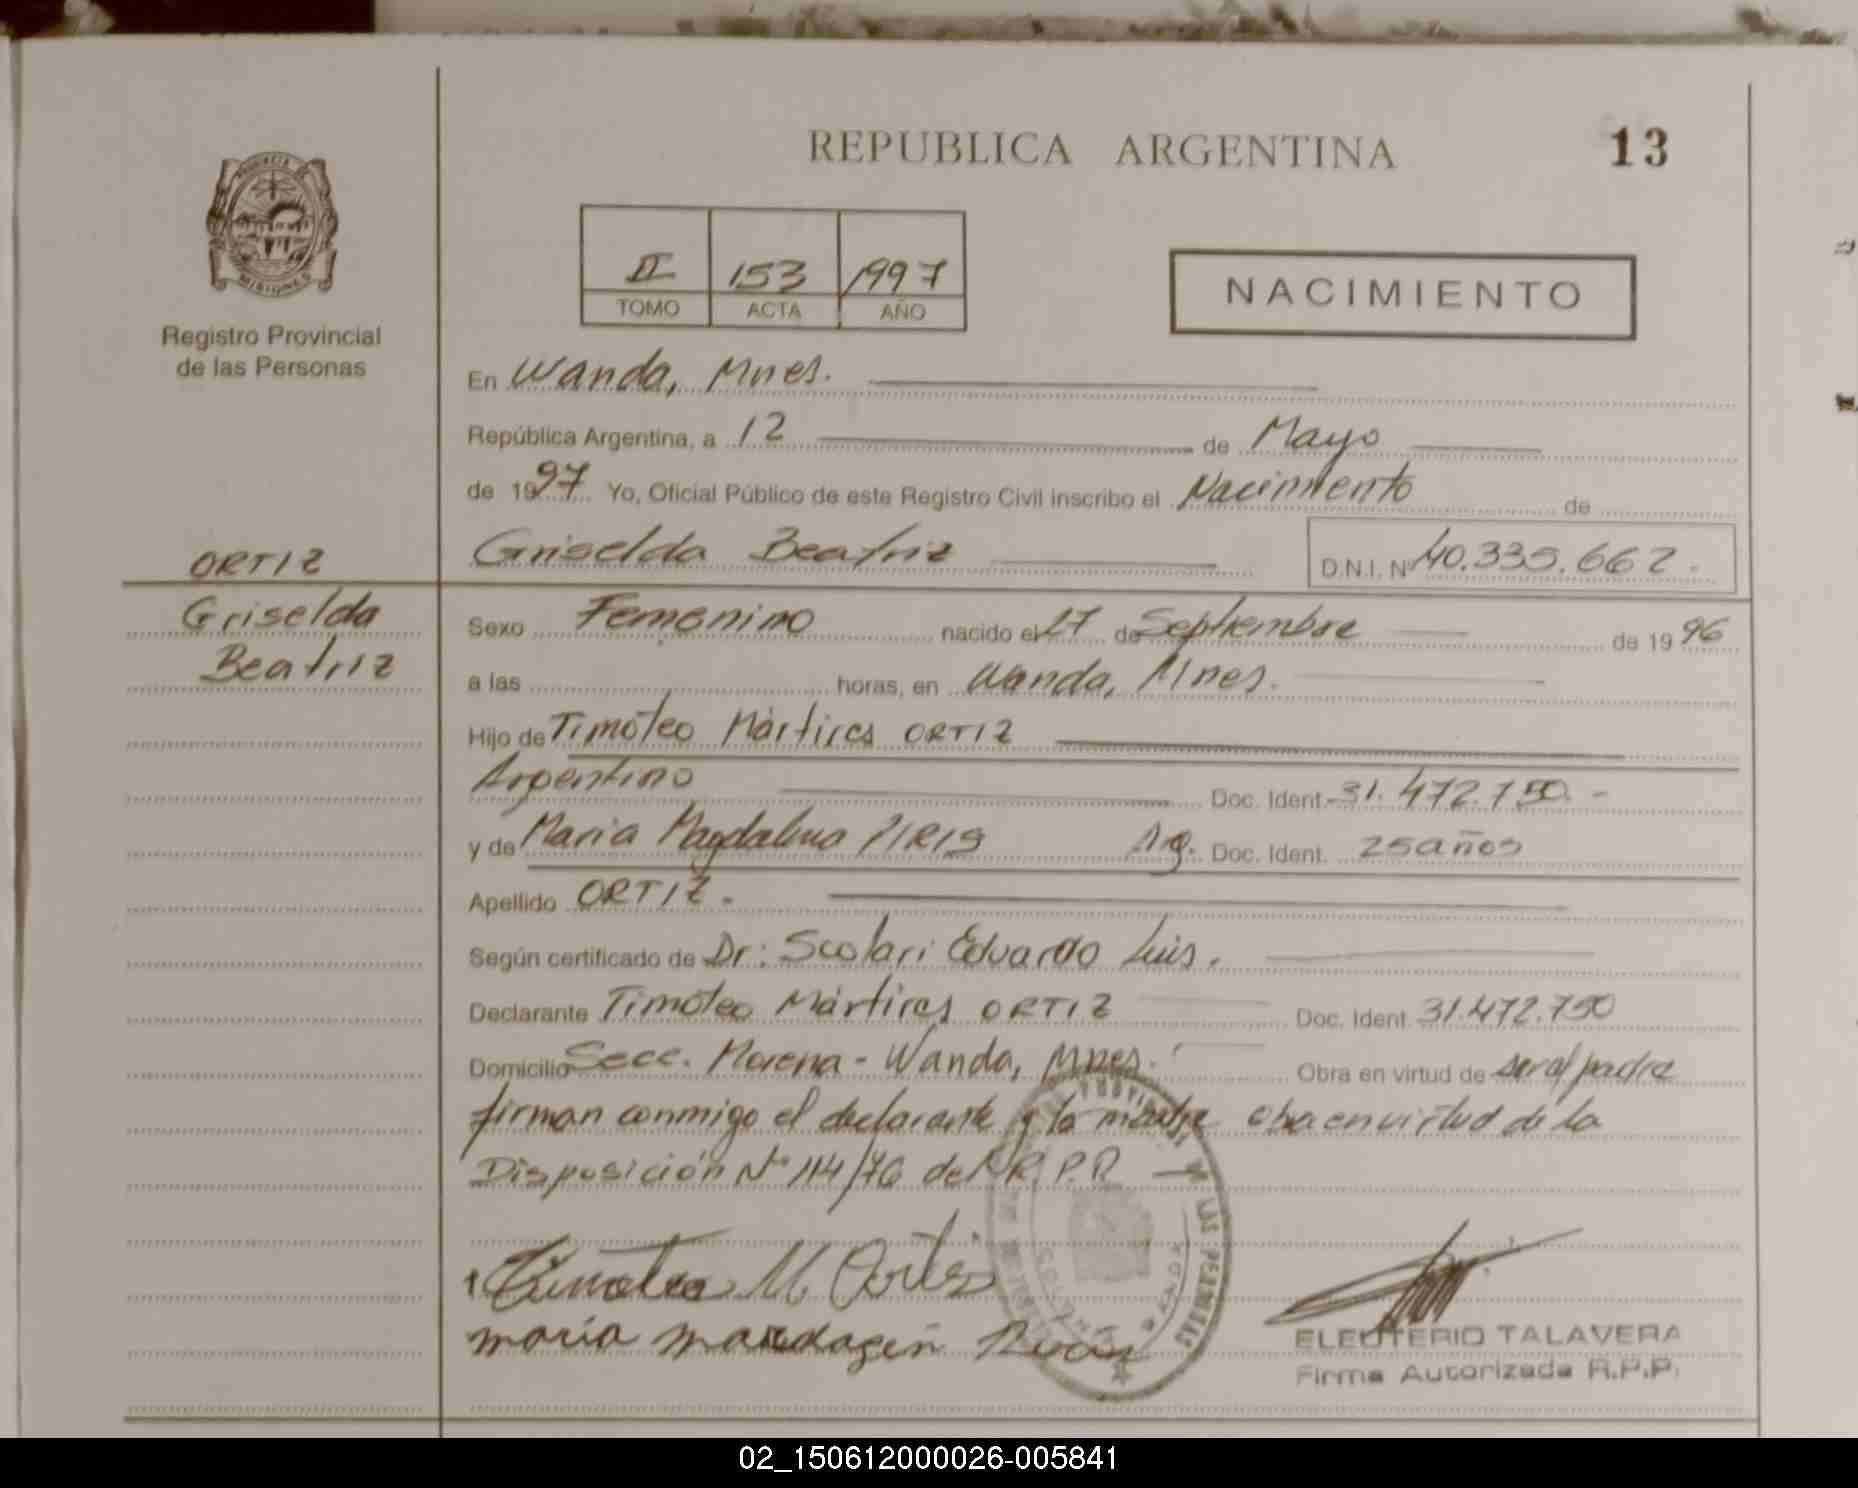 REPUBLICA ARGENTINA
13
PROVINCIA DE
MISIONES
Registro Provincial
de las Personas
II 153 1997
TOMO ACTA AÑO
NACIMIENTO
En Wanda, Mnes.
República Argentina, a 12 de Mayo
de 1997 Yo, Oficial Público de este Registro Civil inscribo el Nacimiento de
Griselda Beatriz D.N.I. Nº 40.335.662.
ORTIZ
Griselda
Beatriz
Sexo Femenino nacido el 27 de Septiembre de 1996
a las horas, en Wanda, Mnes.
Hijo de Timóteo Mártires ORTIZ
Argentino Doc. Ident. 31.472.750.-
y de Maria Magdalena PIRIS Arg. Doc. Ident. 25 años
Apellido ORTIZ.
Según certificado de Dr: Scolari Eduardo Luis.
Declarante Timóteo Mártires ORTIZ Doc. Ident. 31.472.750
Domicilio Secc. Morena - Wanda, Mnes. Obra en virtud de ser el padre
firman conmigo el declarante y la madre obra en virtud de la
Disposición Nº 114/76 del R.P.P.
Timoteo M Ortiz
maria
ELEUTERIO TALAVERA
Firma Autorizada R.P.P.
LAS PERSONAS
02_150612000026-005841